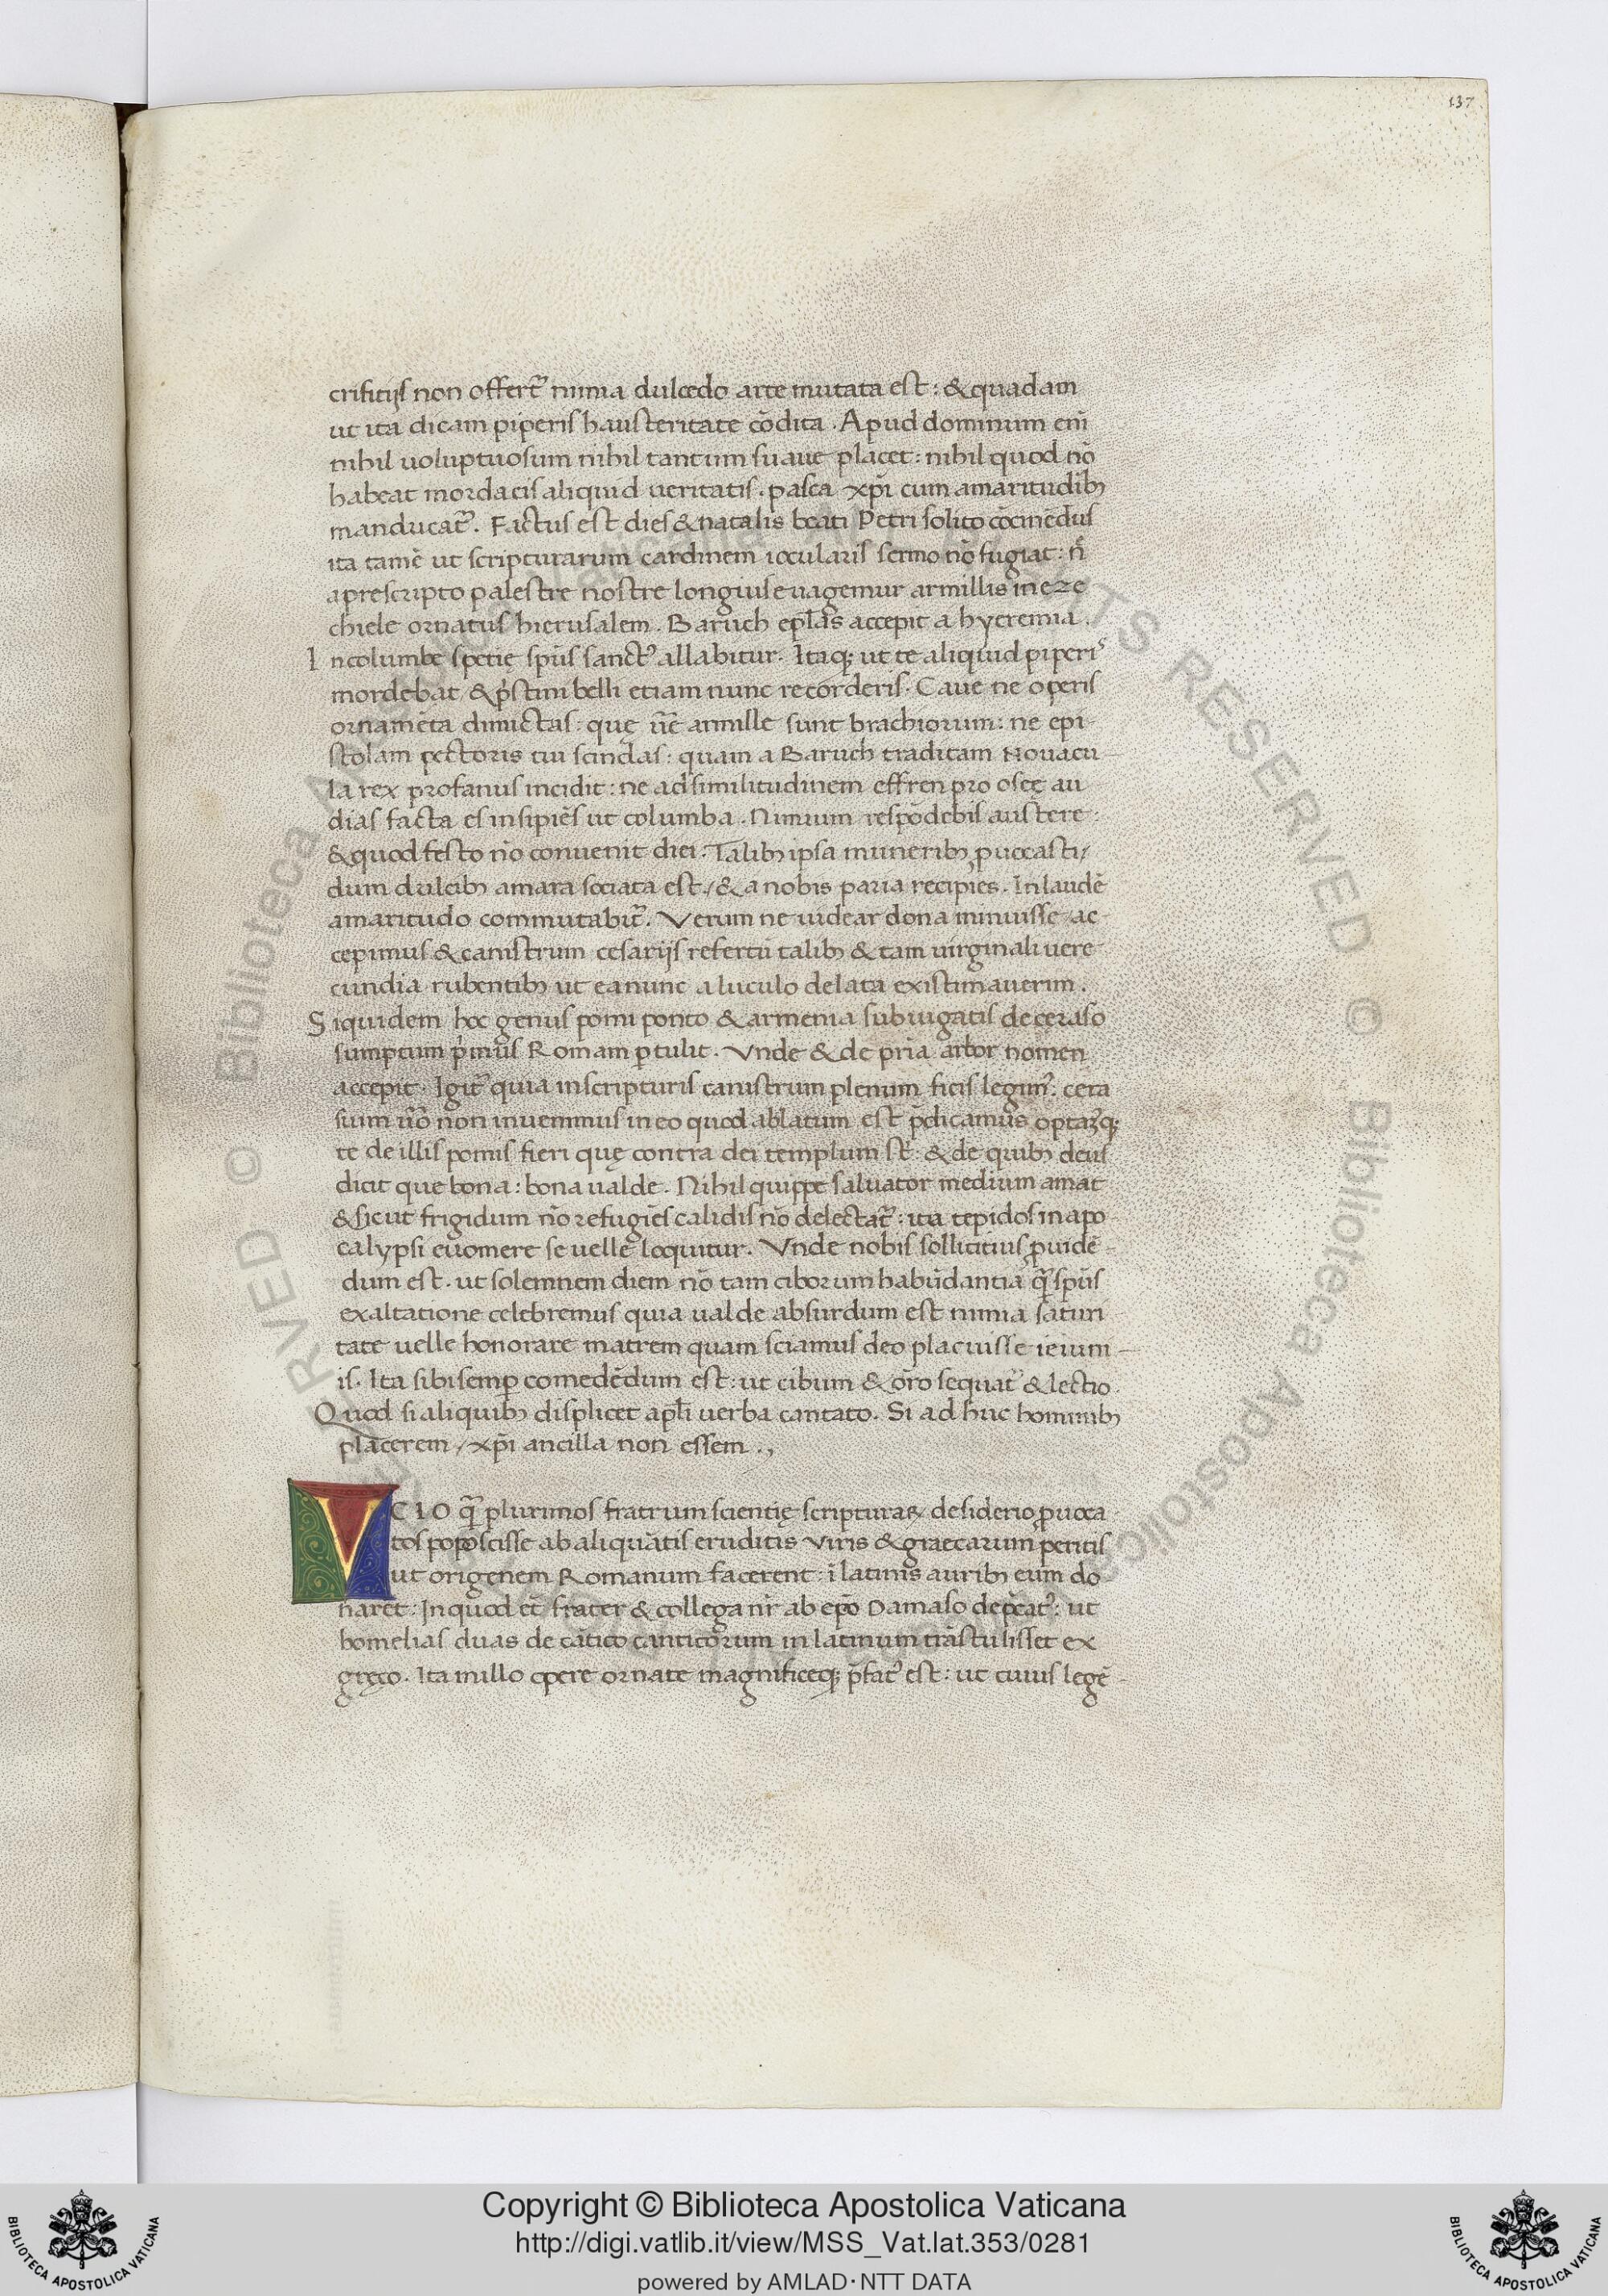 137
crifitijs non offert᷑ nimia dulcedo arte mutata est: & quadam
ut ita dicam piperis hausteritate cōdita. Apud dominum eni̅
nihil uoluptuosum nihil tantum suaue placet: nihil quod nō
habeat mordacis aliquid ueritatis. pasca xp̄i cum amaritudib;
manducat᷑. Factus est dies & natalis beati Petri solito cōcinēdus
ita tamē ut scripturarum cardinem iocularis sermo nō fugiat: n̄
a prescripto palestre nostre longius euagemur armillis in eze
chiele ornatus hierusalem. Baruch ep̄las accepit a hyeremia.
In columbe spetie sp̄us sanct᷒ allabitur. Itaq; ut te aliquid piperis
mordebat & p̓stini belli etiam nunc recorderis. Caue ne operis
ornamēta dimictas: quę ūe armille sunt brachiorum: ne epi
stolam pectoris tui scindas: quam a Baruch traditam Nouacu
la rex profanus incidit: ne ad similitudinem effren pro oseę au
dias facta es insipiēs ut columba. Nimium respōdebis austere:
& quod festo nō conuenit diei. Talib; ipsa munerib; ꝓuocasti/
dum dulcib; amara sociata est/ & a nobis paria recipies. In laudē
amaritudo commutabit᷑. Verum ne uidear dona minuisse ac
cepimus & canistrum cesarijs refertū talib; & tam uirginali uere
cundia rubentib; ut ea nunc a luculo delata existimauerim.
Siquidem hoc genus pomi ponto & armenia subiugatis de ceraso
sumptum p̓mus Romam ꝑtulit. Vnde & de p̄ria arbor nomen
accepit. Igit᷑ quia in scripturis canistrum plenum ficis legim᷒: cera
sium ūo non inuenimus in eo quod ablatum est p̄dicamus optam᷒q;
te de illis pomis fieri quę contra dei templum st̄: & de quib; deus
dicit que bona: bona ualde. Nihil quippe saluator medium amat
& sicut frigidum nō refugiēs calidis nō delectat᷑: ita tepidos in apo
calypsi euomere se uelle loquitur. Vnde nobis sollicitius ꝓuidē
dum est. ut solemnem diem nō tam ciborum habūdantia q̄ sp̄us
exaltatione celebremus quia ualde absurdum est nimia saturi
tate uelle honorare matrem quam sciamus deo placuisse ieiuni
is. Ita sibi semꝑ comedēdum est: ut cibum & ōro sequat᷑ & lectio.
Quod si aliquib; displicet ap̄li uerba cantato. Si ad huc hominib;
placerem / xp̄i ancilla non essem.,
VCIO q̄ plurimos fratrum scientię scripturaꝝ desiderio ꝓuoca
tos poposcisse ab aliquātis eruditis viris & graecarum peritis
ut origenem Romanum facerent: i̅ latinis aurib; eum do
naret: In quod et̄ frater & collega nr̄ ab ep̄o Damaso dep̄cat᷒: ut
homelias duas de cātico canticorum in latinum trāstulisset ex
gręco. Ita in illo opere ornate magnificeq; p̄fat᷒ est: ut cuius legē
Copyright © Biblioteca Apostolica Vaticana
http://digi.vatlib.it/view/MSS_Vat.lat.353/0281
powered by AMLAD·NTT DATA